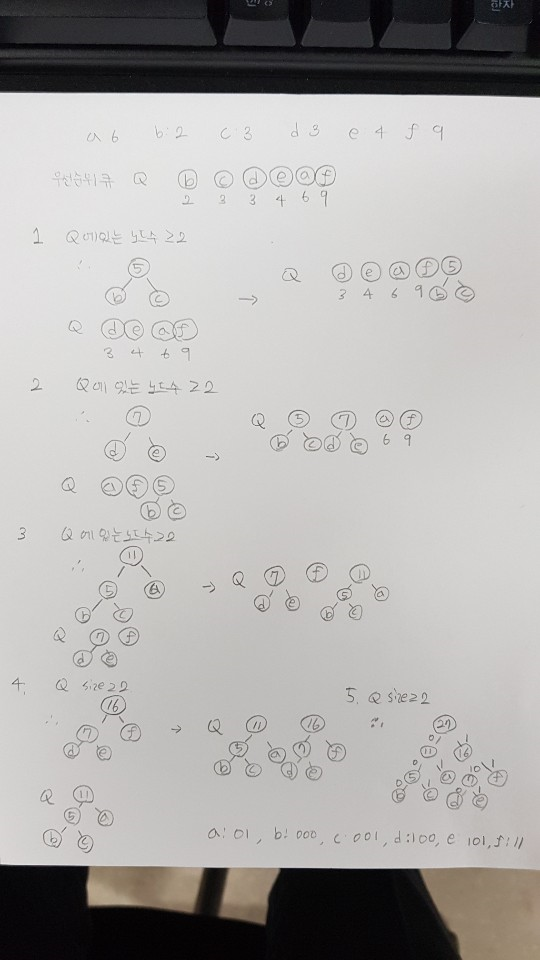 한자
a 6 b: 2 c: 3 d 3 e 4 f 9
우선순위 큐 Q b c d e a f
2 3 3 4 6 9
1 Q에 있는 노드수 ≥2
∴ 5 → Q d e a f 5
b c 3 4 6 9 b c
Q d e a f
3 4 6 9
2 Q에 있는 노드수 ≥2
∴ 7 → Q 5 7 a f
d e b c d e 6 9
Q a f 5
b c
3 Q에 있는 노드수≥2
∴ 11 → Q 7 f 11
5 a d e 5 a
b c b c
Q 7 f
d e
4. Q size≥2
∴ 16 → Q 11 16
7 f 5 a 7 f
d e b c d e
Q 11
5 a
b c
5. Q size≥2
∴ 27
0 1
11 16
0 1 0 1
5 a 7 f
0 1 0 1
b c d e
a: 01, b: 000, c: 001, d:100, e 101, f: 11